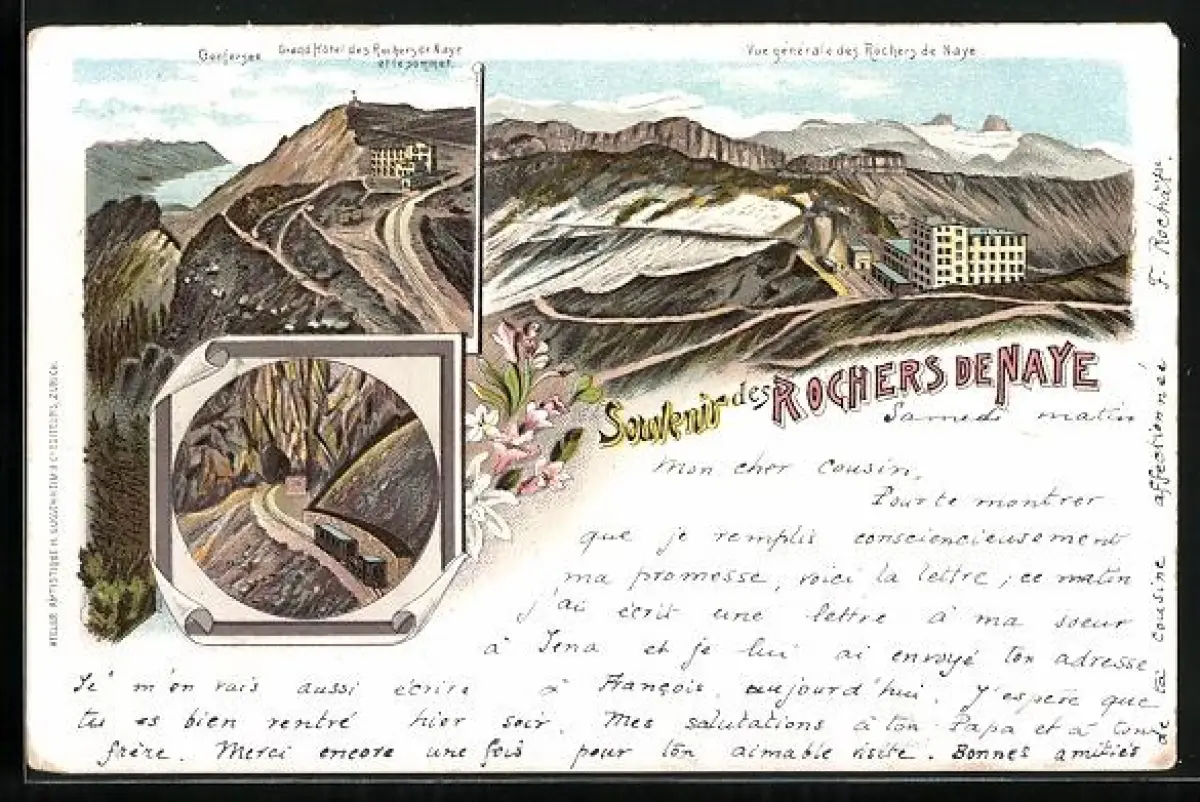 Genfersee
Grand Hôtel des Rochers de Naye
et le sommet.
Vue générale des Rochers de Naye
Souvenir des ROCHERS DE NAYE
Samedi matin
Mon cher cousin,
Pour te montrer
que je remplis consciencieusement
ma promesse, voici la lettre; ce matin
j'ai écrit une lettre à ma soeur
à Jena et je lui ai envoyé ton adresse
Je m'en vais aussi écrire à François, aujourd'hui. J'espère que
tu es bien rentré hier soir. Mes salutations à ton Papa et à ton
frère. Merci encore une fois pour ton aimable visite. Bonnes amitiés
de ta cousine affectionnée F. Rochat.
ATELIER ARTISTIQUE H. GUGGENHEIM & Cie EDITEURS, ZÜRICH.